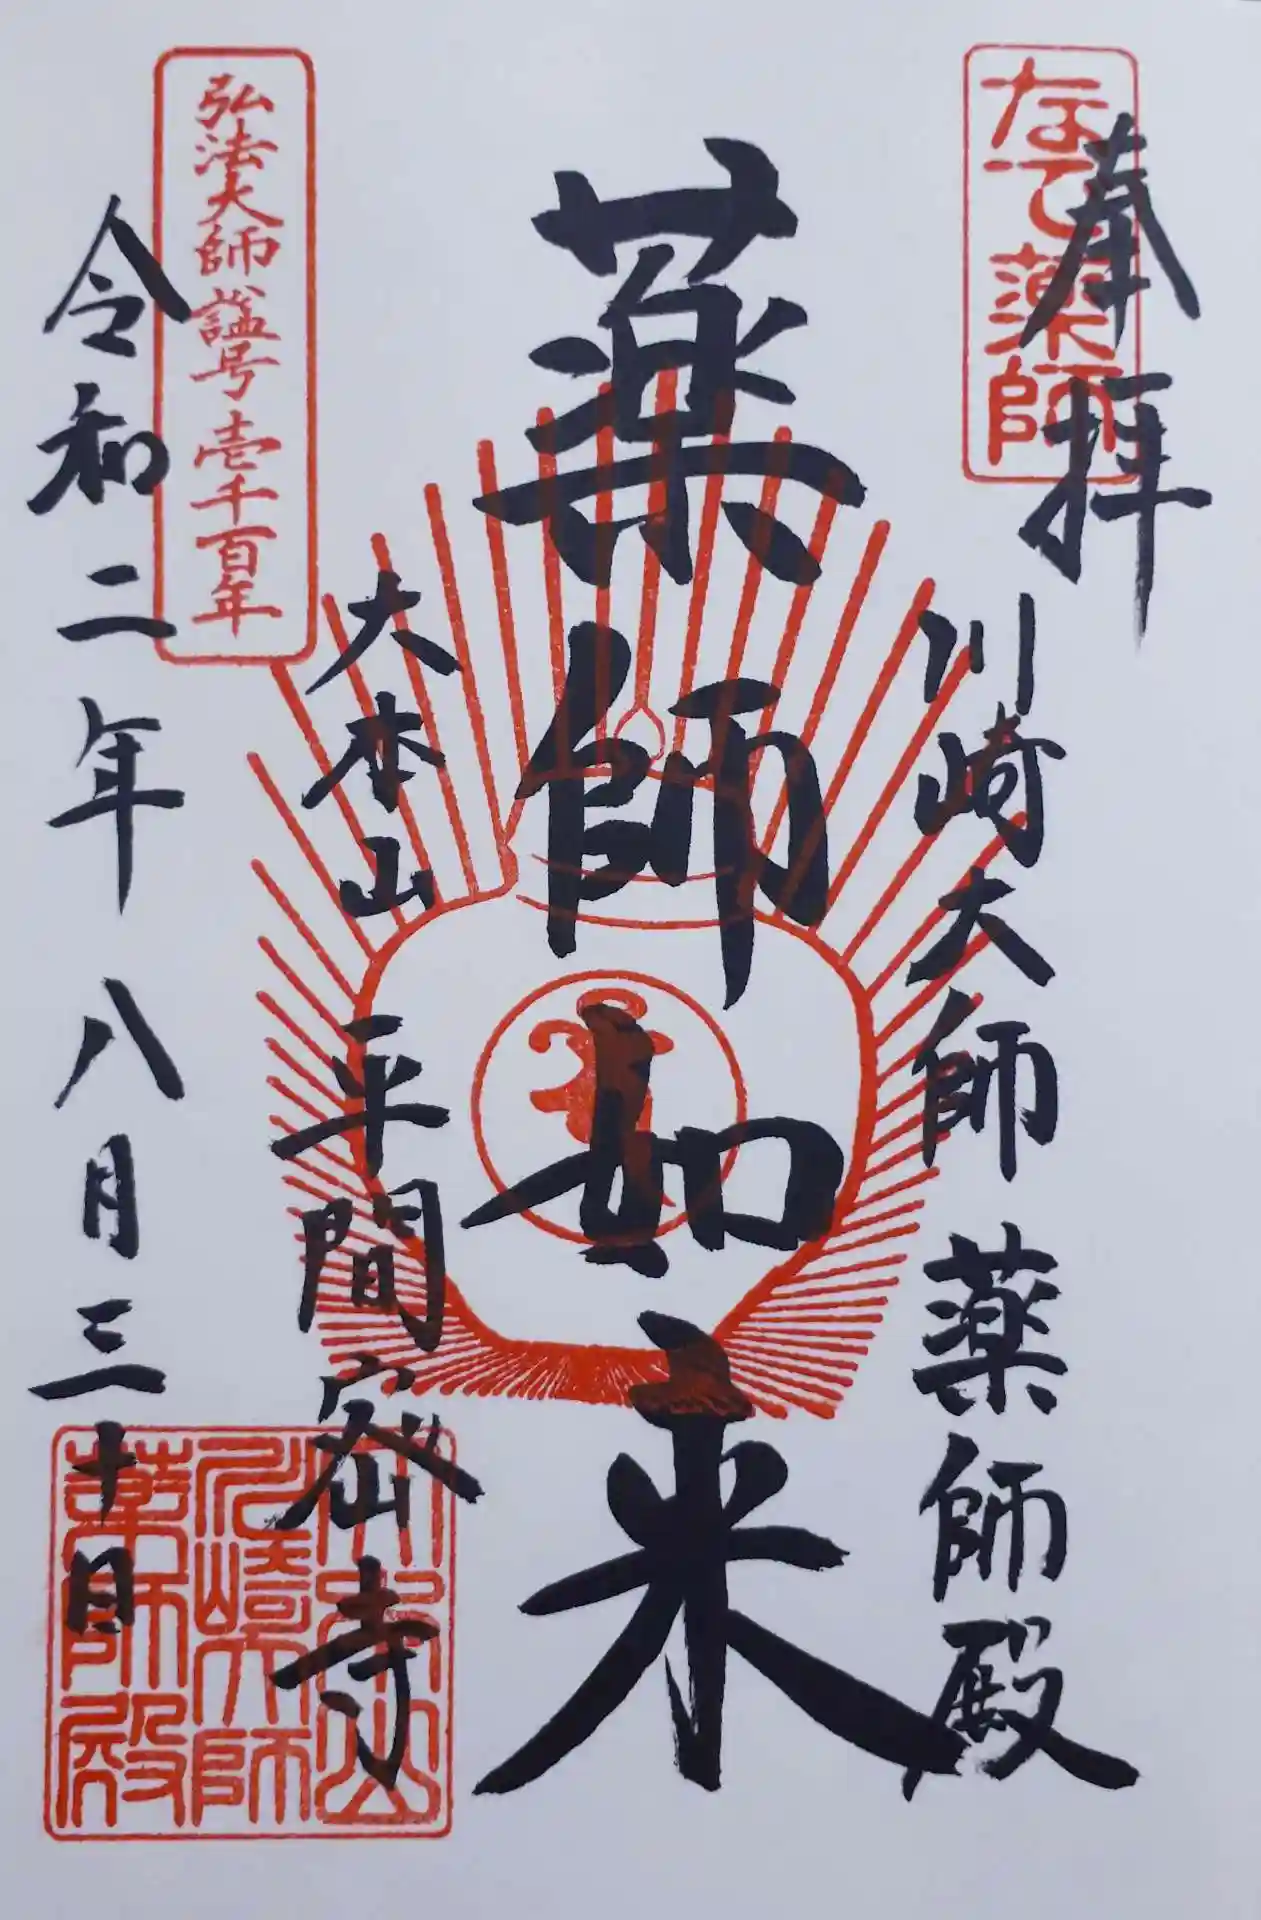 奉拝
なで薬師
川崎大師 薬師殿
薬師如来
大本山 平間密寺
弘法大師諡号壱千百年
令和二年八月三十日
大本山
川崎大師
薬師殿